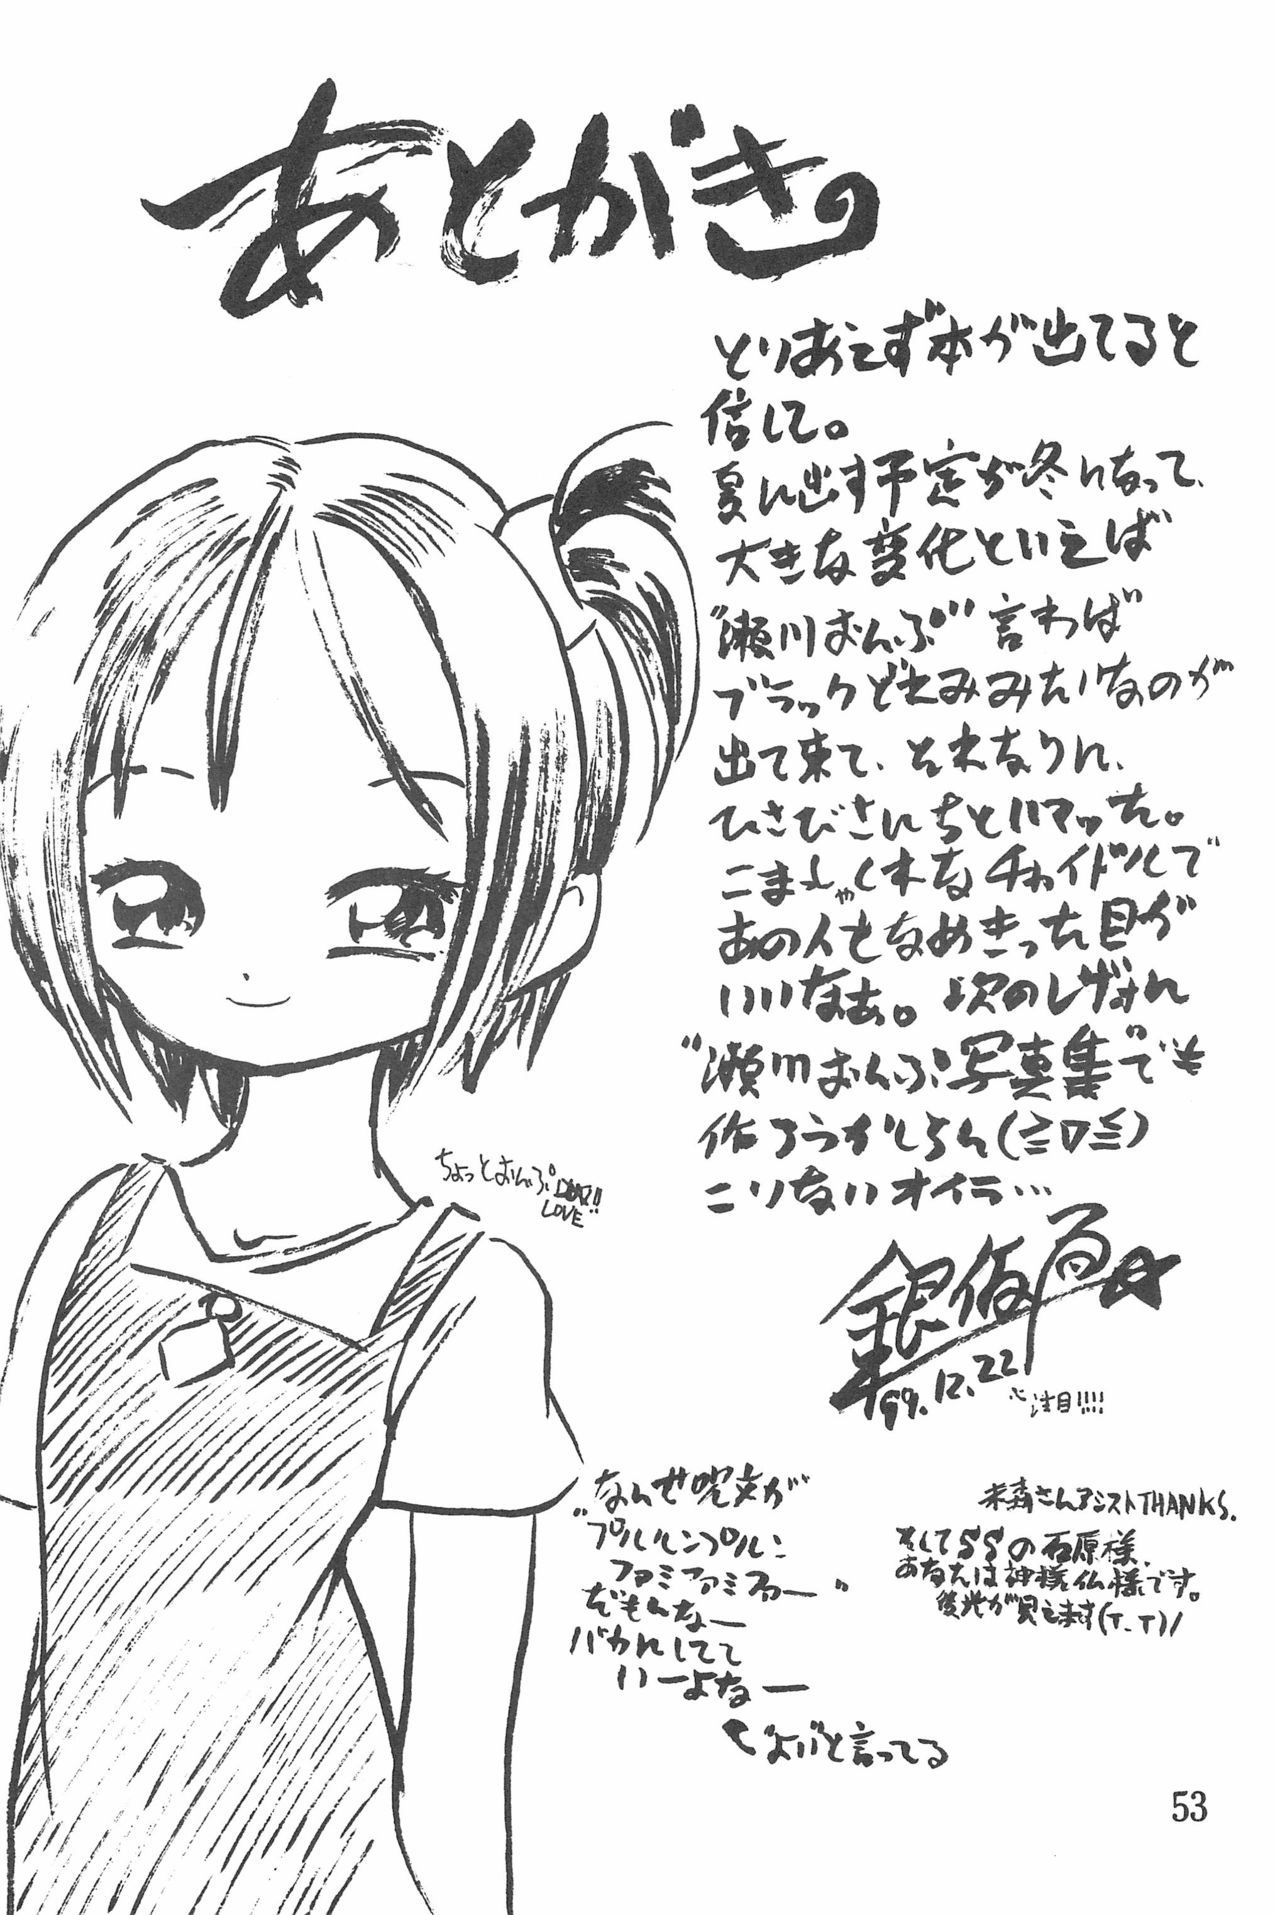 あとがき。
とりあえず本が出てると
信じて。
夏に出す予定が冬になって、
大きな変化といえば
"瀬川おんぷ" 言わば
ブラックどれみみたいなのが
出て来て、それなりに、
ひさびさにちとハマッた。
こまっしゃくれなチャイドルで
あの人をなめきった目が
いいなぁ。次のレヴォに
"瀬川おんぷ写真集"でも
作ろうかしらん(≧▽≦)
こりないオイラ…
ちょっとおんぷ
LOVE
銀仮面☆
'99.12.22
注目!!!!
なんせ呪文が
"プルルンプルン
ファミファミファー"
だもんなー
バカにしてて
いーよなー
米森さんアシストTHANKS.
そしてSSの石原様、
あなたは神様仏様です。
後光が見えます(T_T)/
と言ってる
53